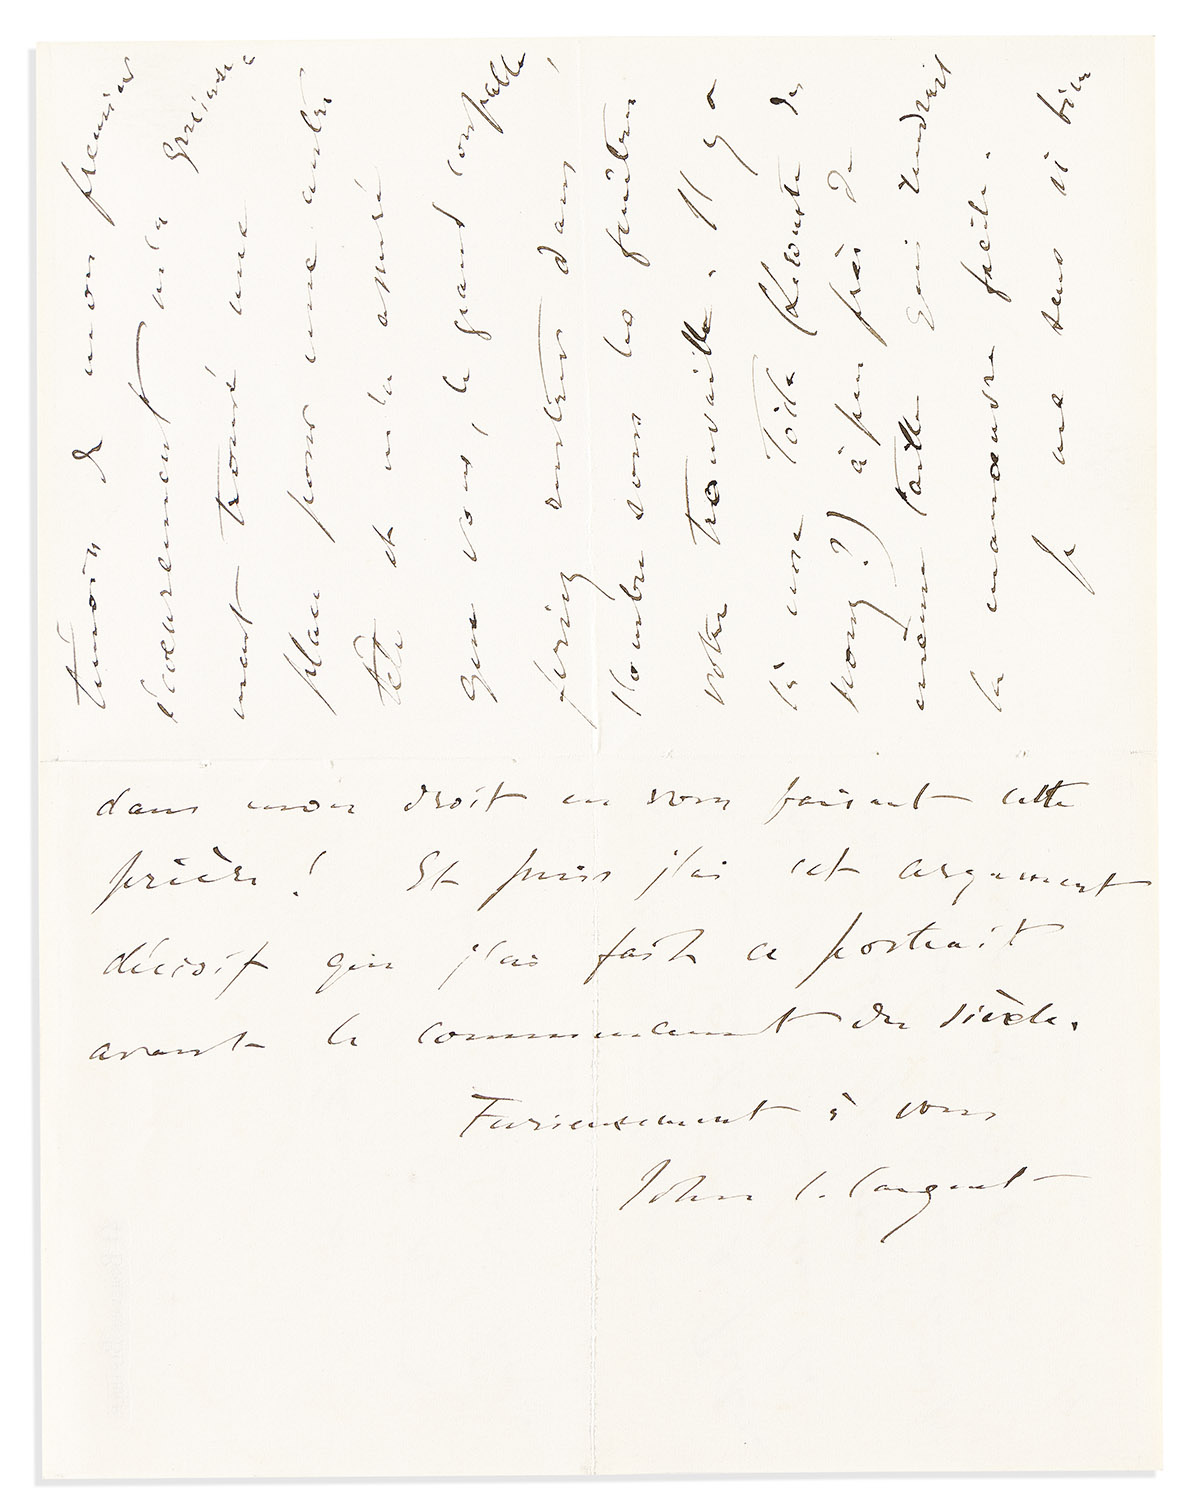 témoin de mon premier
écoeurement m'a gracieuse-
ment trouvé une
place pour une autre
tête et m'a assuré
que vous, le grand coupable,
feriez rentrer dans
l'ombre sous les fenêtres
votre trouvaille. Il y a
là une Toile (Lecomte du
Nouy?) à peu près de
même taille qui rendrait
la manoeuvre facile.
Je me sens si bien
dans mon droit en vous faisant cette
prière! Et puis j'ai cet argument
décisif que j'ai fait ce portrait
avant le commencement du siècle.
Furieusement à vous
John S. Sargent